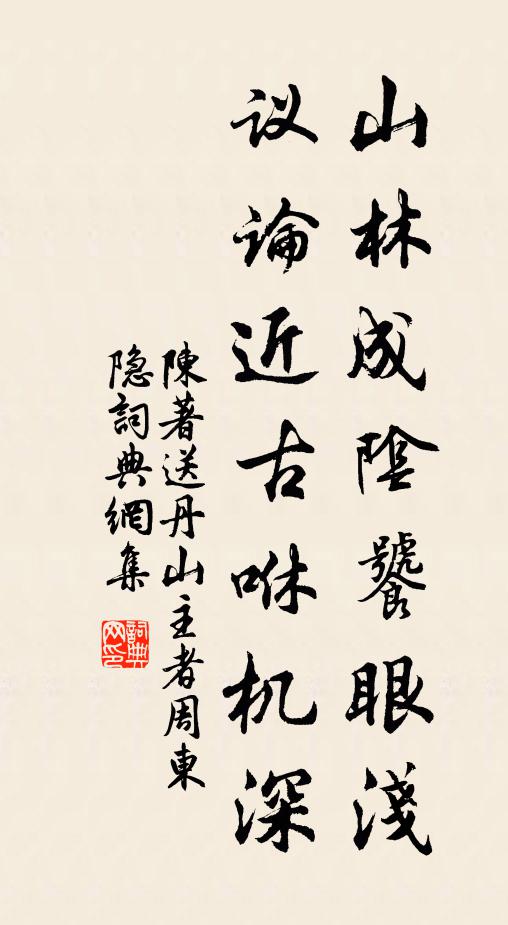 山林成陰饕眼淺
议論近古咻机深
陳著送丹山主者周東
隐詞典網集
詞典网印